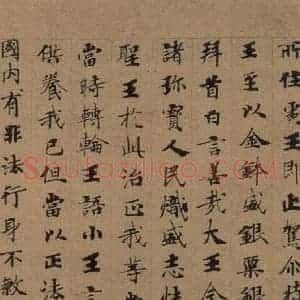 所住王即止駕尒
王至以金鉢盛銀粟
拜首白言善哉大王
諸珎寶人民熾盛志
聖王於此治正我等
當時轉輪王語小王言
供養我已但當以正法
國内有非法行身不